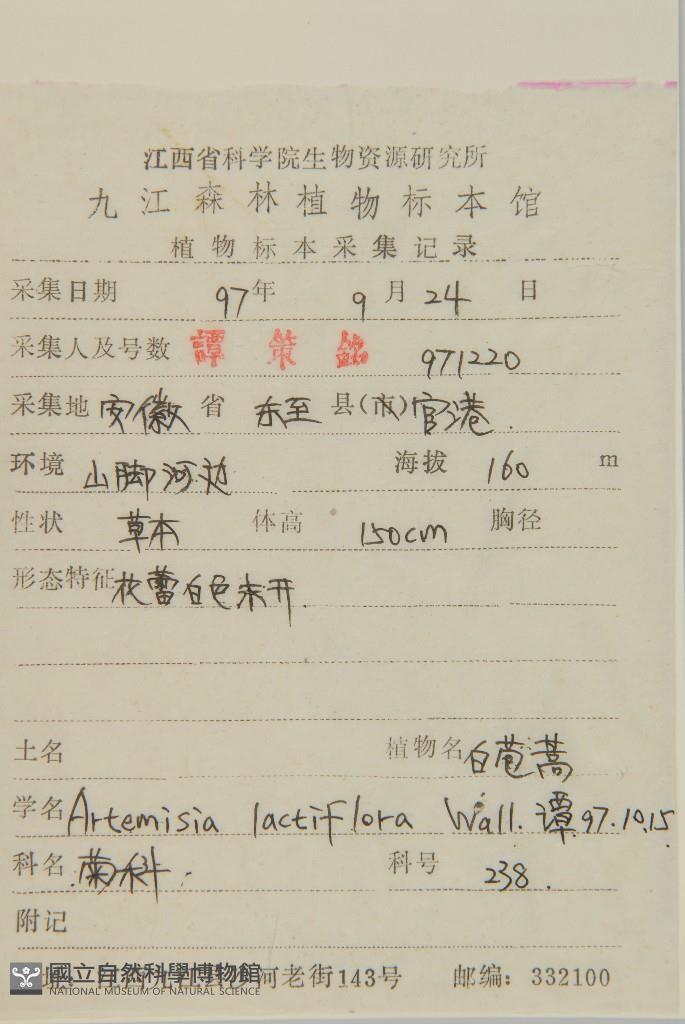 江西省科学院生物资源研究所
九江森林植物标本馆
植物标本采集记录
采集日期 97年 9月24日
采集人及号数 譚策銘 971220
采集地 安徽省 东至县(市)官港.
环境 山脚河边 海拔 160 m
性状 草本 体高 150cm 胸径
形态特征 花蕾白色未开.
土名 植物名 白苞蒿
学名 Artemisia lactiflora Wall. 谭.97.10.15.
科名 菊科. 科号 238.
附记
河老街143号 邮编：332100
國立自然科學博物館
NATIONAL MUSEUM OF NATURAL SCIENCE